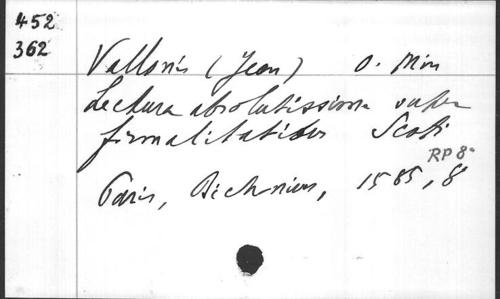 452
362
Vallonis (Jean) O. Min
Lectura absolutissima super
formalitatibus Scoti
RP 8°
Paris, 1585, 8